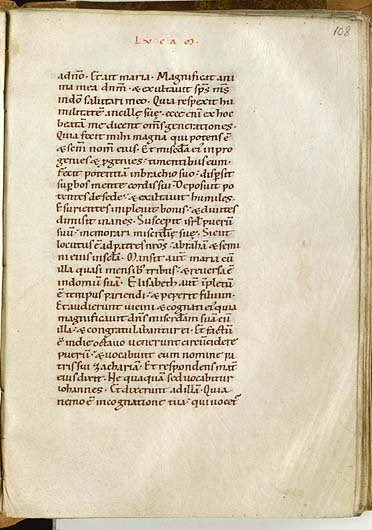 108
LVCAM.
adnō. Et ait maria. Magnificat ani
ma mea dnm̄. & exultauit sps̄ ms̄
indō salutari meo. Quia respexit hu
militatē ancillę suę. ecce enī ex hoc
beatā me dicent oms̄ generationes.
Quia fecit mihi magna qui potens ē.
& scm̄ nom̄ eius. Et miscdīa ei' in pro
genies & pgenies timentibus eum.
Fecit potentiā in brachio suo. dispsit
supbos mente cordis sui. Deposuit po
tentes de sede. & exaltauit humiles.
Esurientes impleuit bonis. & diuites
dimisit inanes. Suscepit isrl̄ puerū
suū. memorari misercdię suę. Sicut
locutus ē ad patres nr̄os. abrahā & semi
ni eius in scl̄a. Mansit aut̄ maria cū
illa quasi mensib' tribus. & reuersa ē
in domum suā. Elisabeth aut̄ impletū
ē tempus pariendi. & peperit filium.
Et audierunt uicini & cognati ei' quia
magnificauit dns̄ miscdiam suā cū
illa. & congratulabantur ei. Et factū
ē in die octauo uenerunt circūcidere
puerū. & uocabunt eum nomine pa
tris sui zachariā. Et respondens mat̄
eius dixit. Ne quaquā sed uocabitur
iohannes. Et dixerunt ad illā. Quia
nemo ē in cognatione tua. qui uocet̄